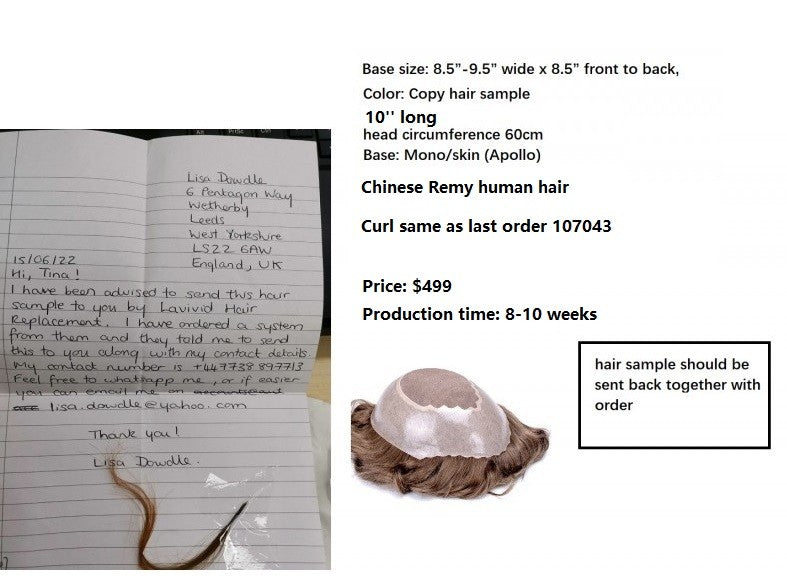 Lisa Dowdle
6 Pentagon Way
Wetherby
Leeds
West Yorkshire
LS22 6AW
England, UK
15/06/22
Hi, Tina!
I have been advised to send this hair
sample to you by Lavivid Hair
Replacement. I have ordered a system
from them and they told me to send
this to you along with my contact details.
My contact number is +447738 897713
Feel free to whatsapp me, or if easier
you can email me on
lisa.dowdle@yahoo.com
Thank you!
Lisa Dowdle.
Base size: 8.5”-9.5” wide x 8.5” front to back,
Color: Copy hair sample
10'' long
head circumference 60cm
Base: Mono/skin (Apollo)
Chinese Remy human hair
Curl same as last order 107043
Price: $499
Production time: 8-10 weeks
hair sample should be
sent back together with
order